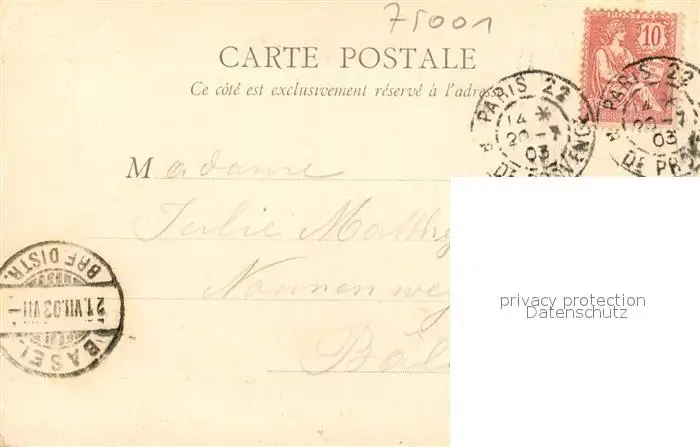 75001
CARTE POSTALE
Ce côté est exclusivement réservé à l'adresse
POSTES
10
PARIS 22
14 *
20 - 7
03
DE PROVENCE
PARIS 22
14 *
20 - 7
03
DE PRO
Madame
Julie Matth
Nonnenweg
Bâl
BRF DISTR.
21.VII.03.VII-
BASEL
privacy protection
Datenschutz